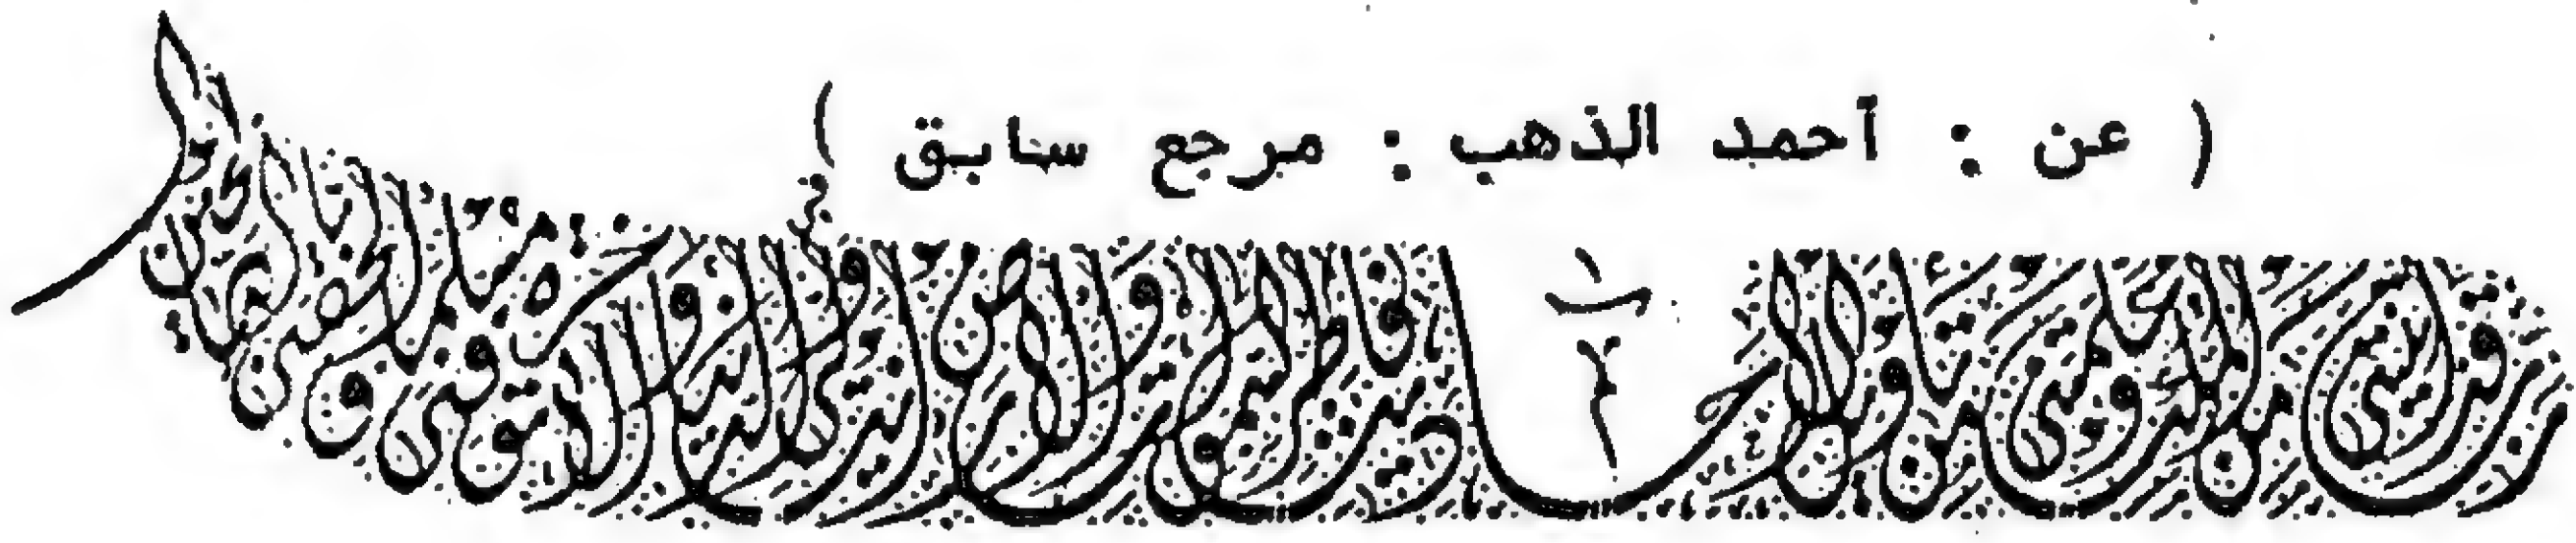 ( عن : أحمد الذهب : مرجع سابق )
رب قد آتيتني من الملك وعلمتني من تأويل الأحاديث فاطر السموات والأرض أنت ولي في الدنيا والآخرة توفني مسلما وألحقني بالصالحين